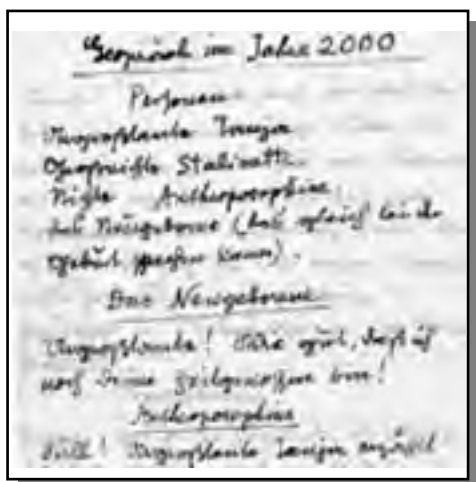 Gespräch im Jahre 2000
Personen
Urgroßtante Tanzja
Großnichte Stalinette
Nichte Anthroposophine
Das Neugeborene (das gleich bei der
Geburt sprechen kann).
Das Neugeborene
Urgroßtante! Wie gut, daß ich
noch Deine Zeitgenossin bin!
Anthroposophine
Still! Urgroßtante Tanzja erzählt